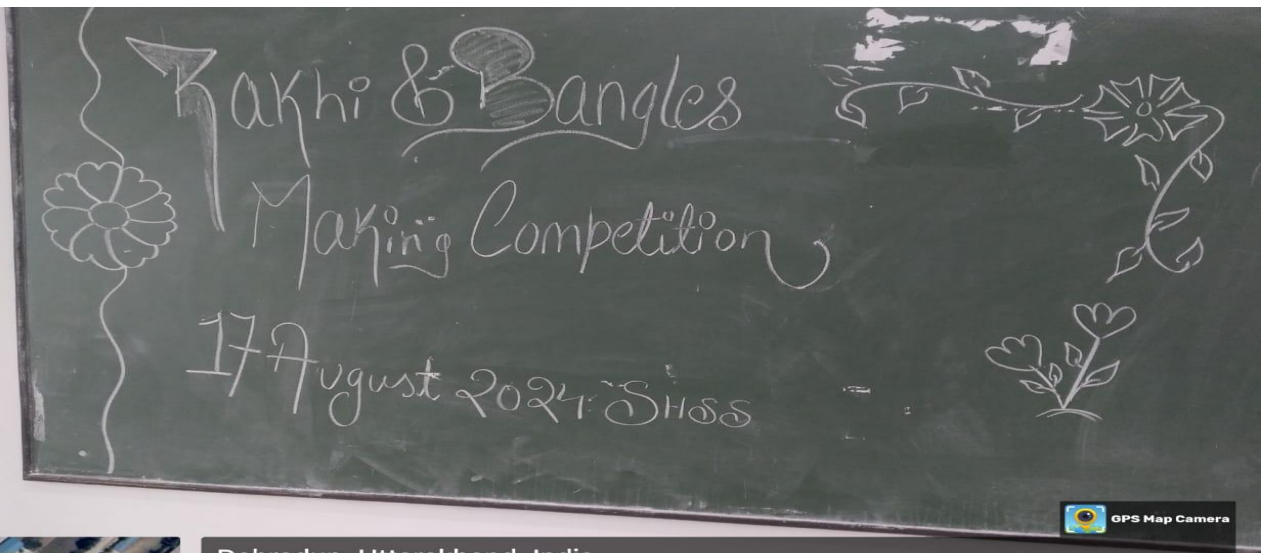 Rakhi & Bangles
Making Competition
17 August 2024 SHSS
GPS Map Camera
Dehradun, Uttarakhand, India